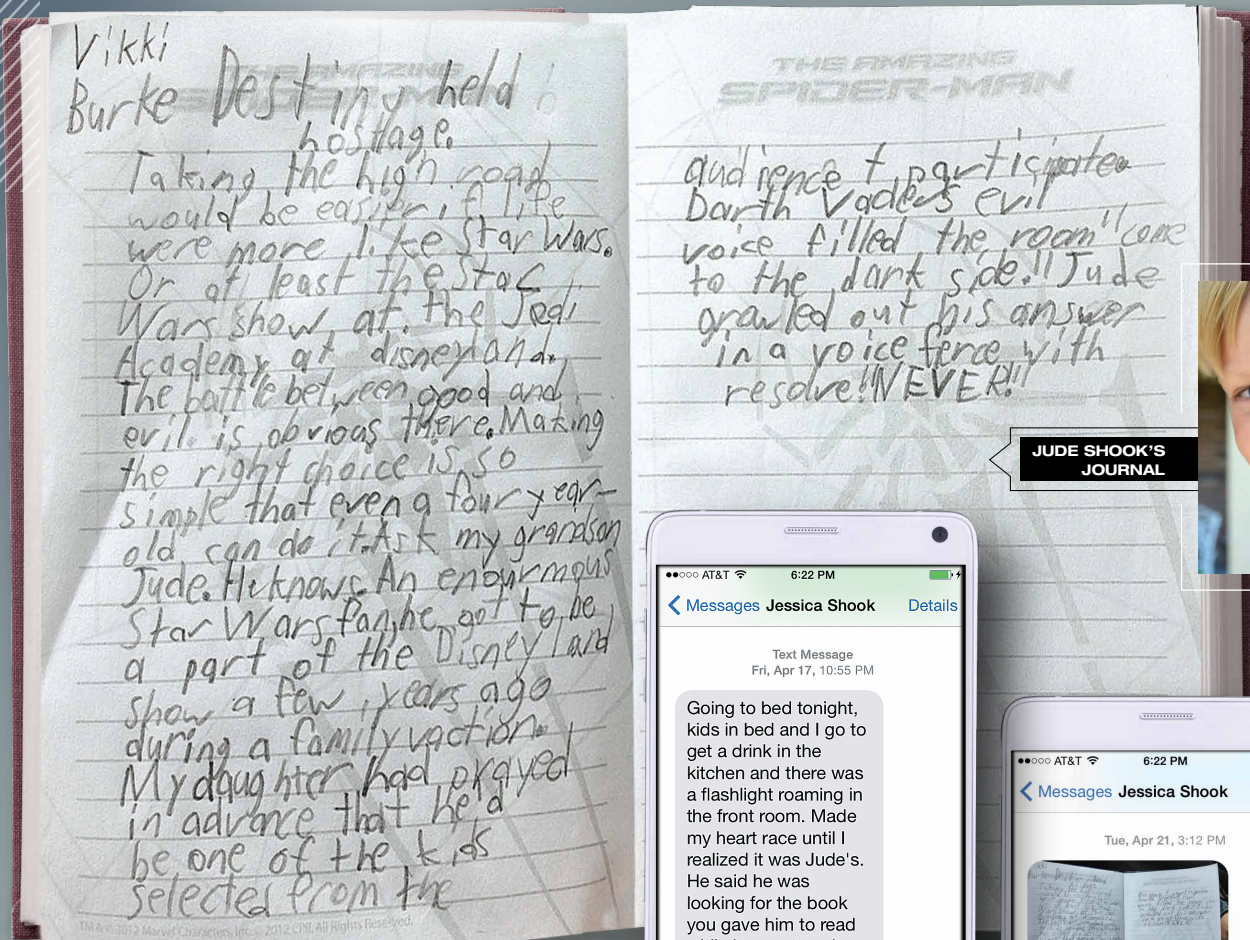 Vikki
Burke Destiny held
hostage.
Taking the high road
would be easier if life
were more like Star Wars.
Or at least the Star
Wars show at the Jedi
Academy at disneyland.
The battle between good and
evil is obvious there. Making
the right choice is so
simple that even a four year-
old can do it. Ask my grandson
Jude. He knows. An enourmous
Star Wars fan, he got to be
a part of the Disneyland
show a few years ago
during a family vaction.
My daughter had prayed
in advance that he'd
be one of the kids
selected from the
TM & © 2012 Marvel Characters, Inc. © 2012 CPII. All Rights Reserved.
THE AMAZING
SPIDER-MAN
THE AMAZING
SPIDER-MAN
audience t participate
Darth Vader's evil
voice filled the room "come
to the dark side." Jude
growled out his answer
in a voice ferce with
resolve "NEVER!"
JUDE SHOOK'S
JOURNAL
AT&T 6:22 PM
Messages Jessica Shook Details
Text Message
Fri, Apr 17, 10:55 PM
Going to bed tonight,
kids in bed and I go to
get a drink in the
kitchen and there was
a flashlight roaming in
the front room. Made
my heart race until I
realized it was Jude's.
He said he was
looking for the book
you gave him to read
AT&T 6:22 PM
Messages Jessica Shook
Tue, Apr 21, 3:12 PM